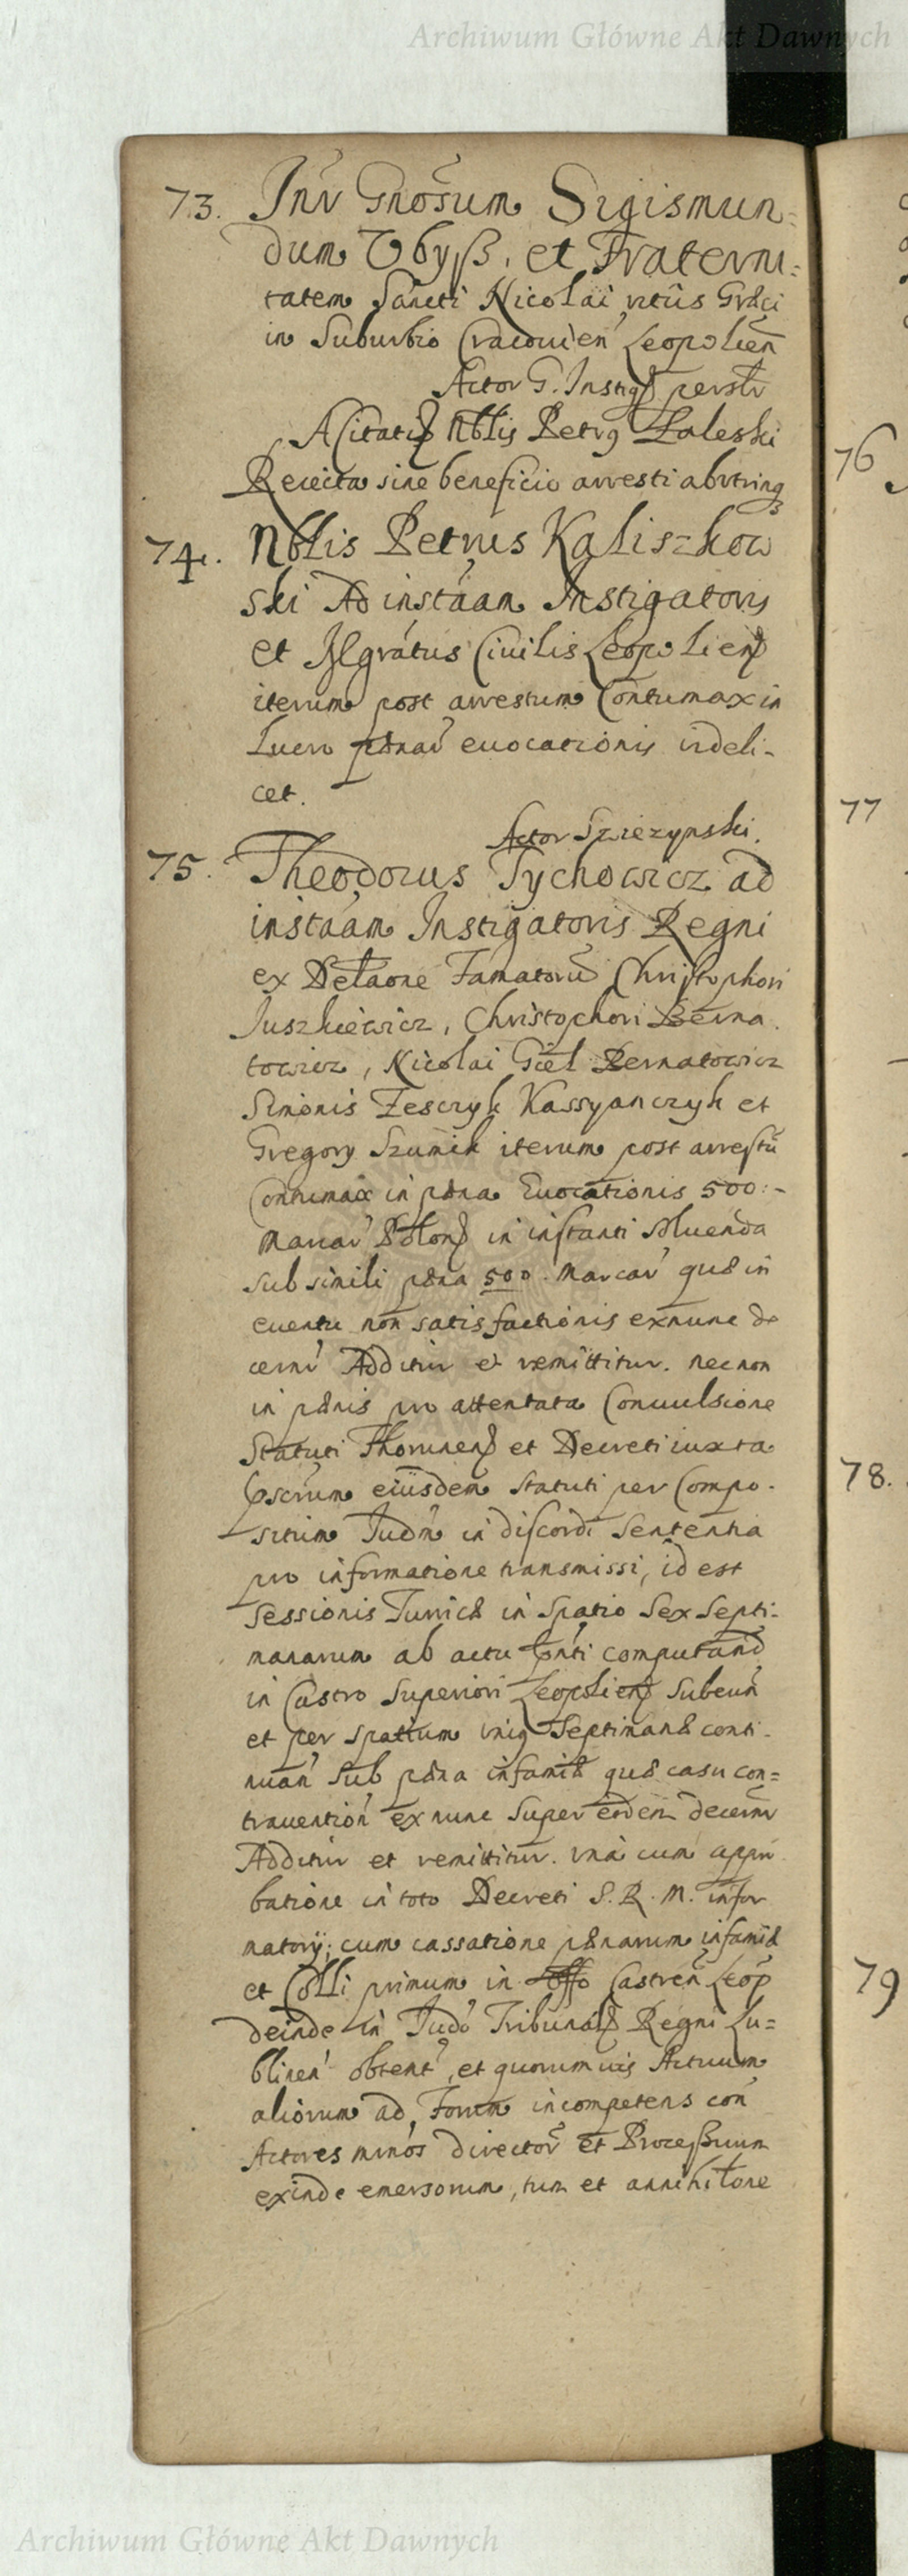 Archiwum Główne Akt Dawnych
73. Inr Gnosum Sigismun=
dum Vbyß, et Fraterni=
tatem Sancti Nicolai ritus Græci
in Suburbio Cracovien Leopolien
Actor G. Instig perstr
A Citatis Nblis Petrg Zaleski
Reiecta sine beneficio arresti ab vtrinq
74. Nblis Petrus Kaliszkow
ski Ad instāam Instigatoris
et Mgratus Ciuilis Leopolien
iterum post arrestum Contumax in
Lucro pænar euocationis videli-
cet.
Actor Szrezypski.
75. Theodorus Tychowicz ad
instāam Instigatoris Regni
ex Delaone Famatoru Christophori
Juszkiewicz, Christophori Berna
towicz, Nicolai Giel Bernatowicz
Simonis Zesczyk Kassyanczyk et
Gregory Szumik iterum post arrestū
Contumax in pæna Euocationis 500:-
Marcar Polon in instanti soluenda
sub simili pæna 500. Marcar quæ in
euentu non satisfactionis exnunc de
cerni Additur et remittitur. nec non
in pænis pro attentata Conuulsione
Statuti Thorunen et Decreti iuxta
pscrum eiusdem Statuti per Compo-
situm Judm in discordi Sententia
pro informatione transmissi, id est
Sessionis Turris in Spatio Sex Septi-
manarum ab actu pnti computand
in Castro Superiori Leopolien Subeun
et per spatium vnig Septimanæ conti-
nuan sub pæna infamiæ quæ casu con=
trauention ex nunc super eodem decerni
Additur et remittitur. vna cum appro
batione in toto Decreti S. R. M. infor
matory; cum cassatione pænarum infamiæ
et Colli primum in Offo Castren Leop
deinde in Judo Tribunals Regni Lu=
blinen obtent, et quorumuis Actuum
aliorum ad Forum incompetens con
Actores minos director et Processuum
exinde emersorum, tum et annihilone
76
77
78.
79
Archiwum Główne Akt Dawnych